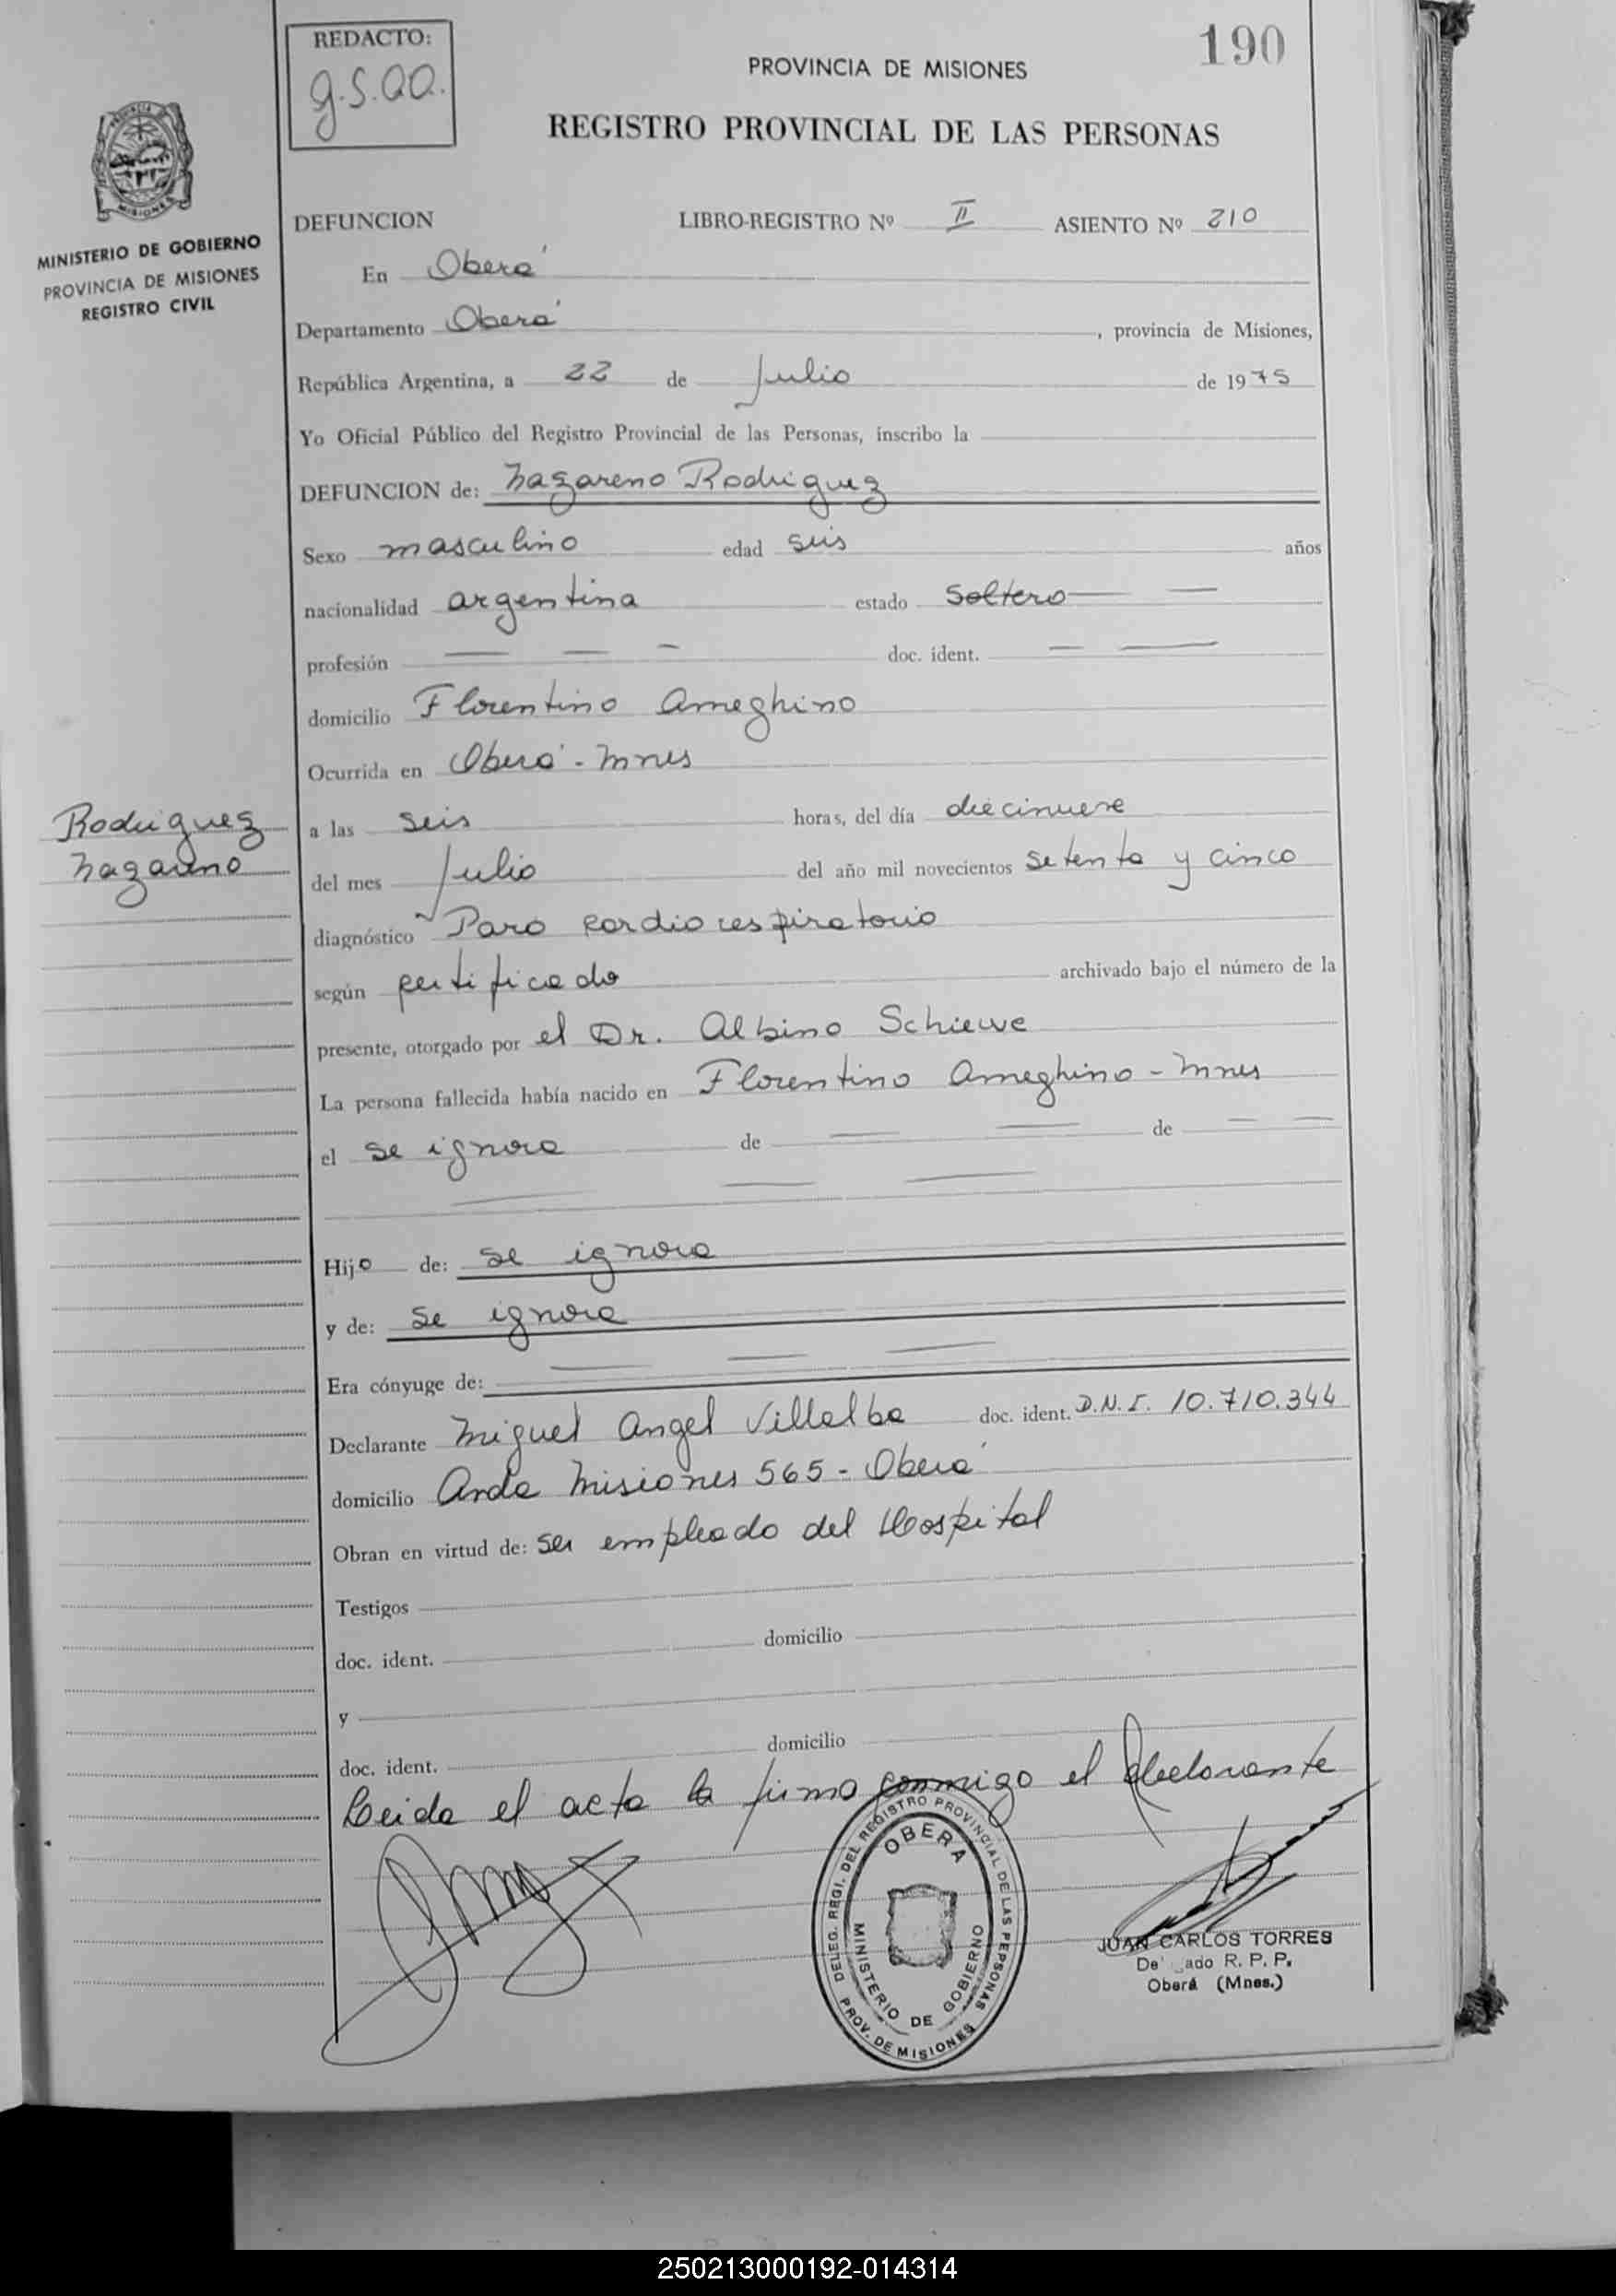 190
REDACTO:
g.S.aa.
PROVINCIA DE MISIONES
REGISTRO PROVINCIAL DE LAS PERSONAS
MISIONES
MINISTERIO DE GOBIERNO
PROVINCIA DE MISIONES
REGISTRO CIVIL
DEFUNCION LIBRO-REGISTRO Nº II ASIENTO Nº 210
En Oberá
Departamento Oberá, provincia de Misiones,
República Argentina, a 22 de Julio de 1975
Yo Oficial Público del Registro Provincial de las Personas, inscribo la
DEFUNCION de: Nazareno Rodriguez
Sexo masculino edad seis años
nacionalidad argentina estado Soltero
profesión — — — doc. ident. — —
domicilio Florentino Ameghino
Ocurrida en Oberá - Mnes
Rodriguez
Nazareno
a las seis horas, del día diecinueve
del mes Julio del año mil novecientos setenta y cinco
diagnóstico Paro cardiorespiratorio
según certificado archivado bajo el número de la
presente, otorgado por el Dr. Albino Schiewe
La persona fallecida había nacido en Florentino Ameghino - Mnes
el se ignora de — — de — —
— — —
Hijo de: se ignora
y de: se ignora
Era cónyuge de: — — —
Declarante Miguel Angel Villalba doc. ident. D.N.I. 10.710.344
domicilio Avda Misiones 565 - Oberá
Obran en virtud de: ser empleado del Hospital
Testigos
doc. ident. domicilio
y
doc. ident. domicilio
Leida el acta la firma conmigo el declarante
DELEG. REGI. DEL REGISTRO PROVINCIAL DE LAS PERSONAS
PROV. DE MISIONES
OBERA
MINISTERIO DE GOBIERNO
JUAN CARLOS TORRES
De ado R. P. P.
Oberá (Mnes.)
250213000192-014314